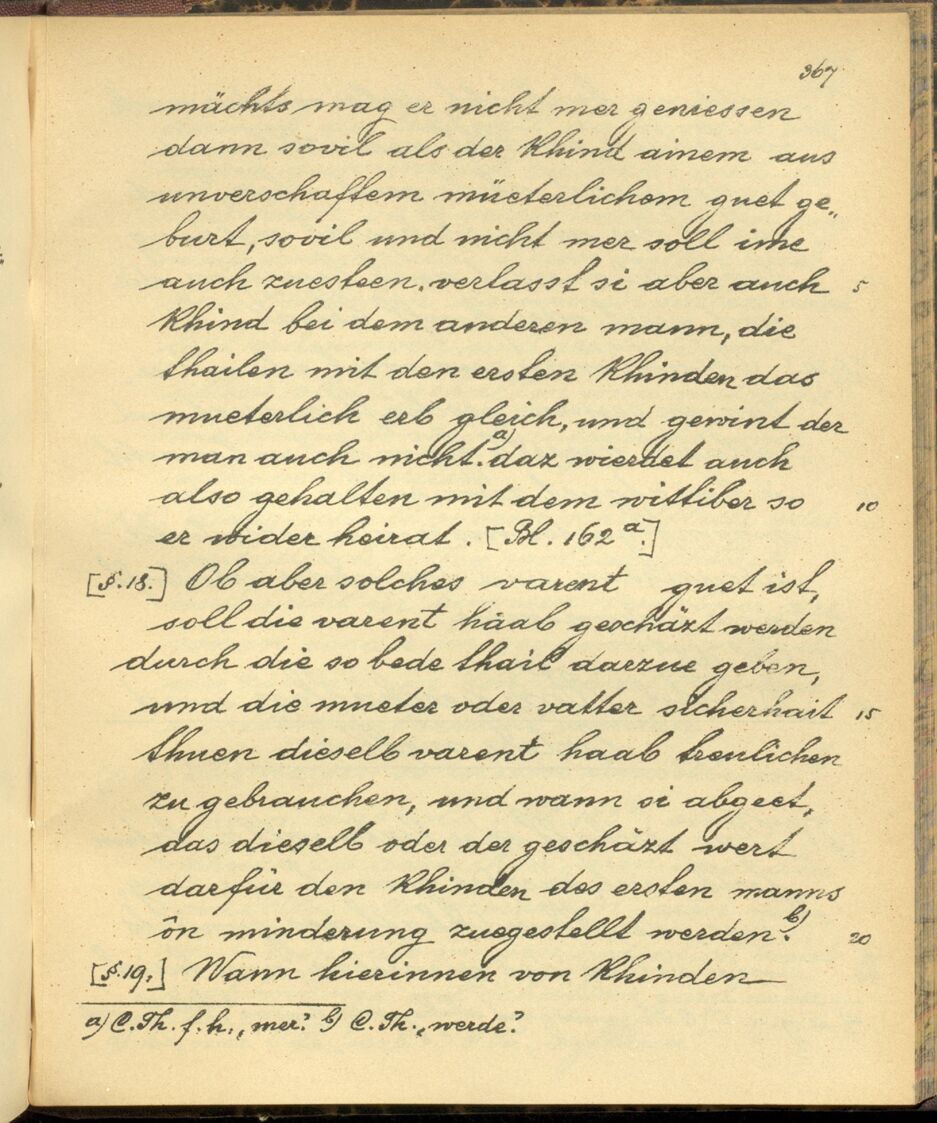 367
mächts mag er nicht mer geniessen
dann sovil als der Khind ainem aus
unverschaftem müeterlichem guet ge„
burt, sovil und nicht mer soll ime
auch zuesteen. verlasst si aber auch 5
Khind bei dem anderen mann, die
thailen mit den ersten Khinden das
mueterlich erb gleich, und gewint der
man auch nicht.a) daz wierdet auch
also gehalten mit dem wittiber so 10
er wider heirat. [Bl. 162a.]
[§.18.] Ob aber solches varent guet ist,
soll die varent haab geschäzt werden
durch die so bede thail darzue geben,
und die mueter oder vatter sicherhait 15
thuen dieselb varent haab treulichen
zu gebrauchen, und wann si abgeet,
das dieselb oder der geschäzt wert
darfür den Khinden des ersten manns
ôn minderung zuegestellt werden.b) 20
[§.19.] Wann hierinnen von Khinden
a) C.Th. f.h. „mer“. b) C.Th. „werde“.